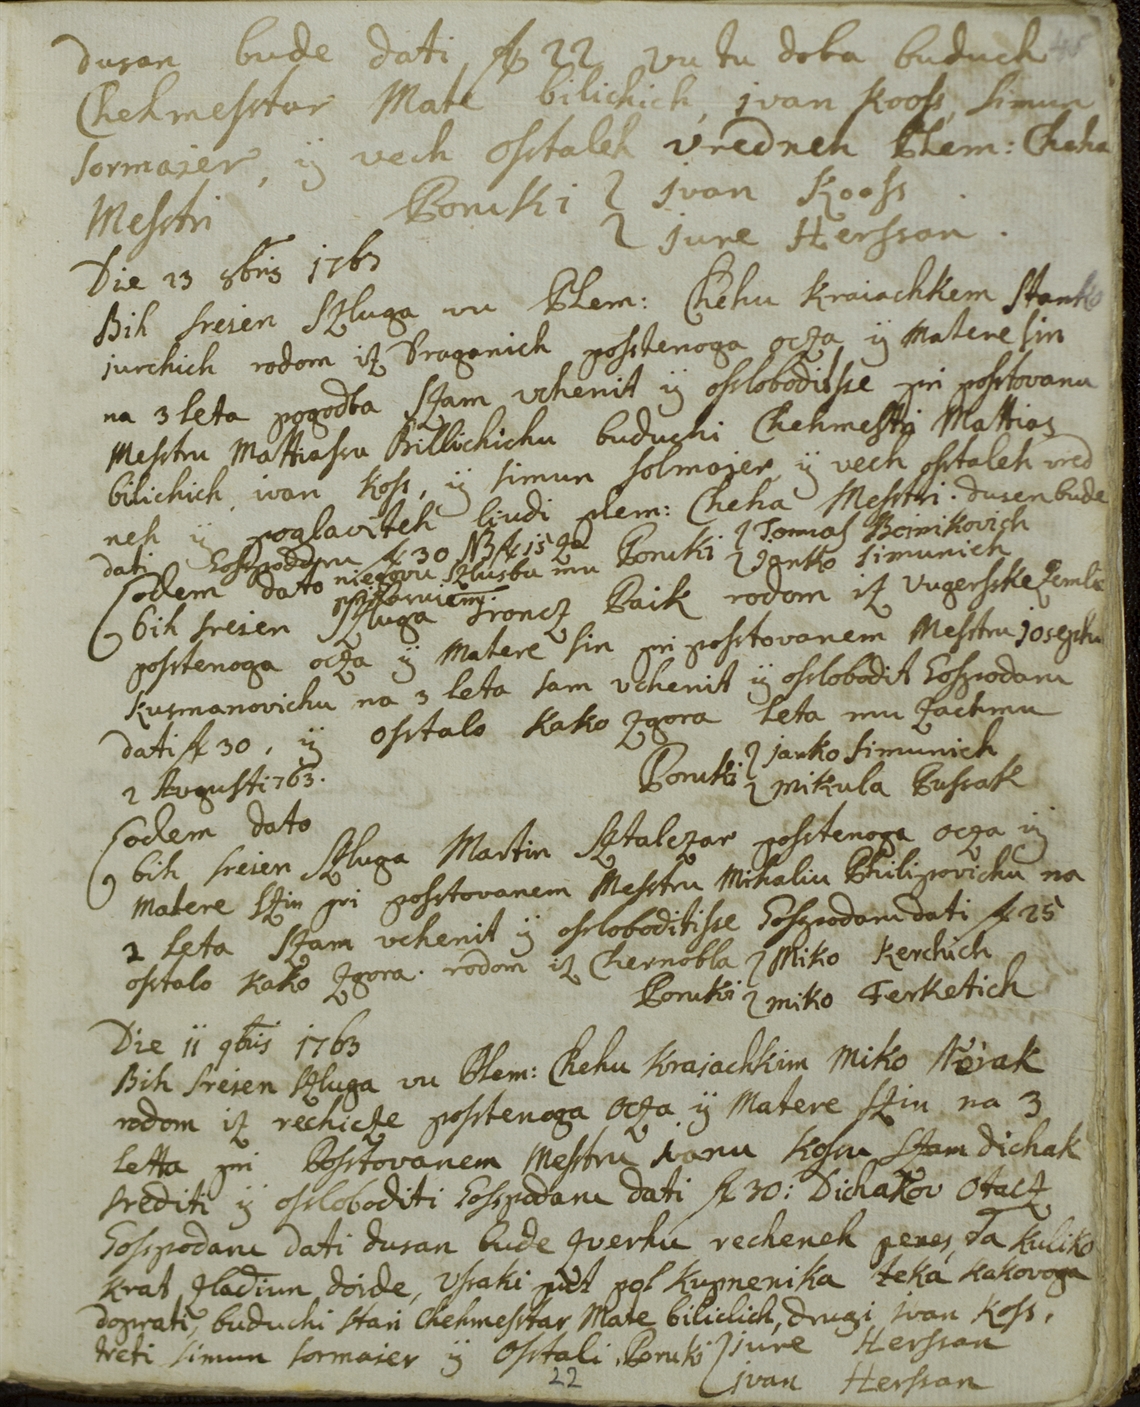 dusan bude dati f 22 vu tu doba buduch 45
Chehmesstar Mate bilichich, jvan Kooss, simun
sormajer, ÿ vech osstaleh vredneh Plem: Cheha
Messtri Poruki jvan Kooss
jure Herssan.
Die 23 8bris 1763
Bih sresen Szluga vu Plem: Chehu Kraiachkem Stanko
jurchich rodom iz Draganich posstenoga ocza ÿ Matere sin
na 3 leta pogodba Szam vchenit ÿ osslobodilsse pri posstovanu
Messtru Mattiassu Billichichu buduchi Chehmesstri Mattias
bilichich ivan Koss, ÿ simun solmajer, ÿ vech osstaleh vred
neh ÿ poglaviteh liudi plem: Cheha Messtri. dusen bude
dati Gosspodaru f 30 NB f 15 za Poruki Tomas Boinikovich
niegovu szlusbu mu Janko simunich
Eodem dato
bih sresen Szluga Froncz Paik rodom iz Vugersske zemle
posstenoga ocza ÿ Matere sin pri posstovanem Messtru Josephu
Kusmanovichu na 3 leta sam vchenit ÿ osslobodit Gosspodaru
dati f 30, ÿ osstalo kako zgora leta mu zachmu
2 Augusti 763. Poruki janko simunich
mikula Pussak
Eodem dato
bih sresen Szluga Martin Sztalczar posstenoga ocza ÿ
Matere Szin pri posstovanem Messtru Mihaliu Philipovichu na
2 leta Szam vchenit ÿ ossloboditisse Gosspodaru dati f 25
osstalo kako zgora. rodom iz Chernobla Miko Kerchich
Poruki miko Ferketich
Die 11 9bris 1763
Bih sresen Szluga vu Plem: Chehu Krajachkim Miko Novak
rodom iz rechicze posstenoga Ocza ÿ Matere Szin na 3
letta pri Posstovanem Messtru ivanu Kossu Szam dichak
srediti ÿ osslobodi­ti Gosspodaru dati f 30: Dichakov Otacz
Gosspodaru dati dusan bude zverhu recheneh penes, Da kuliko
krat Zladiun doide, vssaki put pol kupmenika teka kakovoga
doprati, buduchi stari Chehmesstar Mate bilichich, drugi jvan Koss,
treti simun sormaier ÿ Osstali. Poruki jure Herssan
22 jvan Herssan